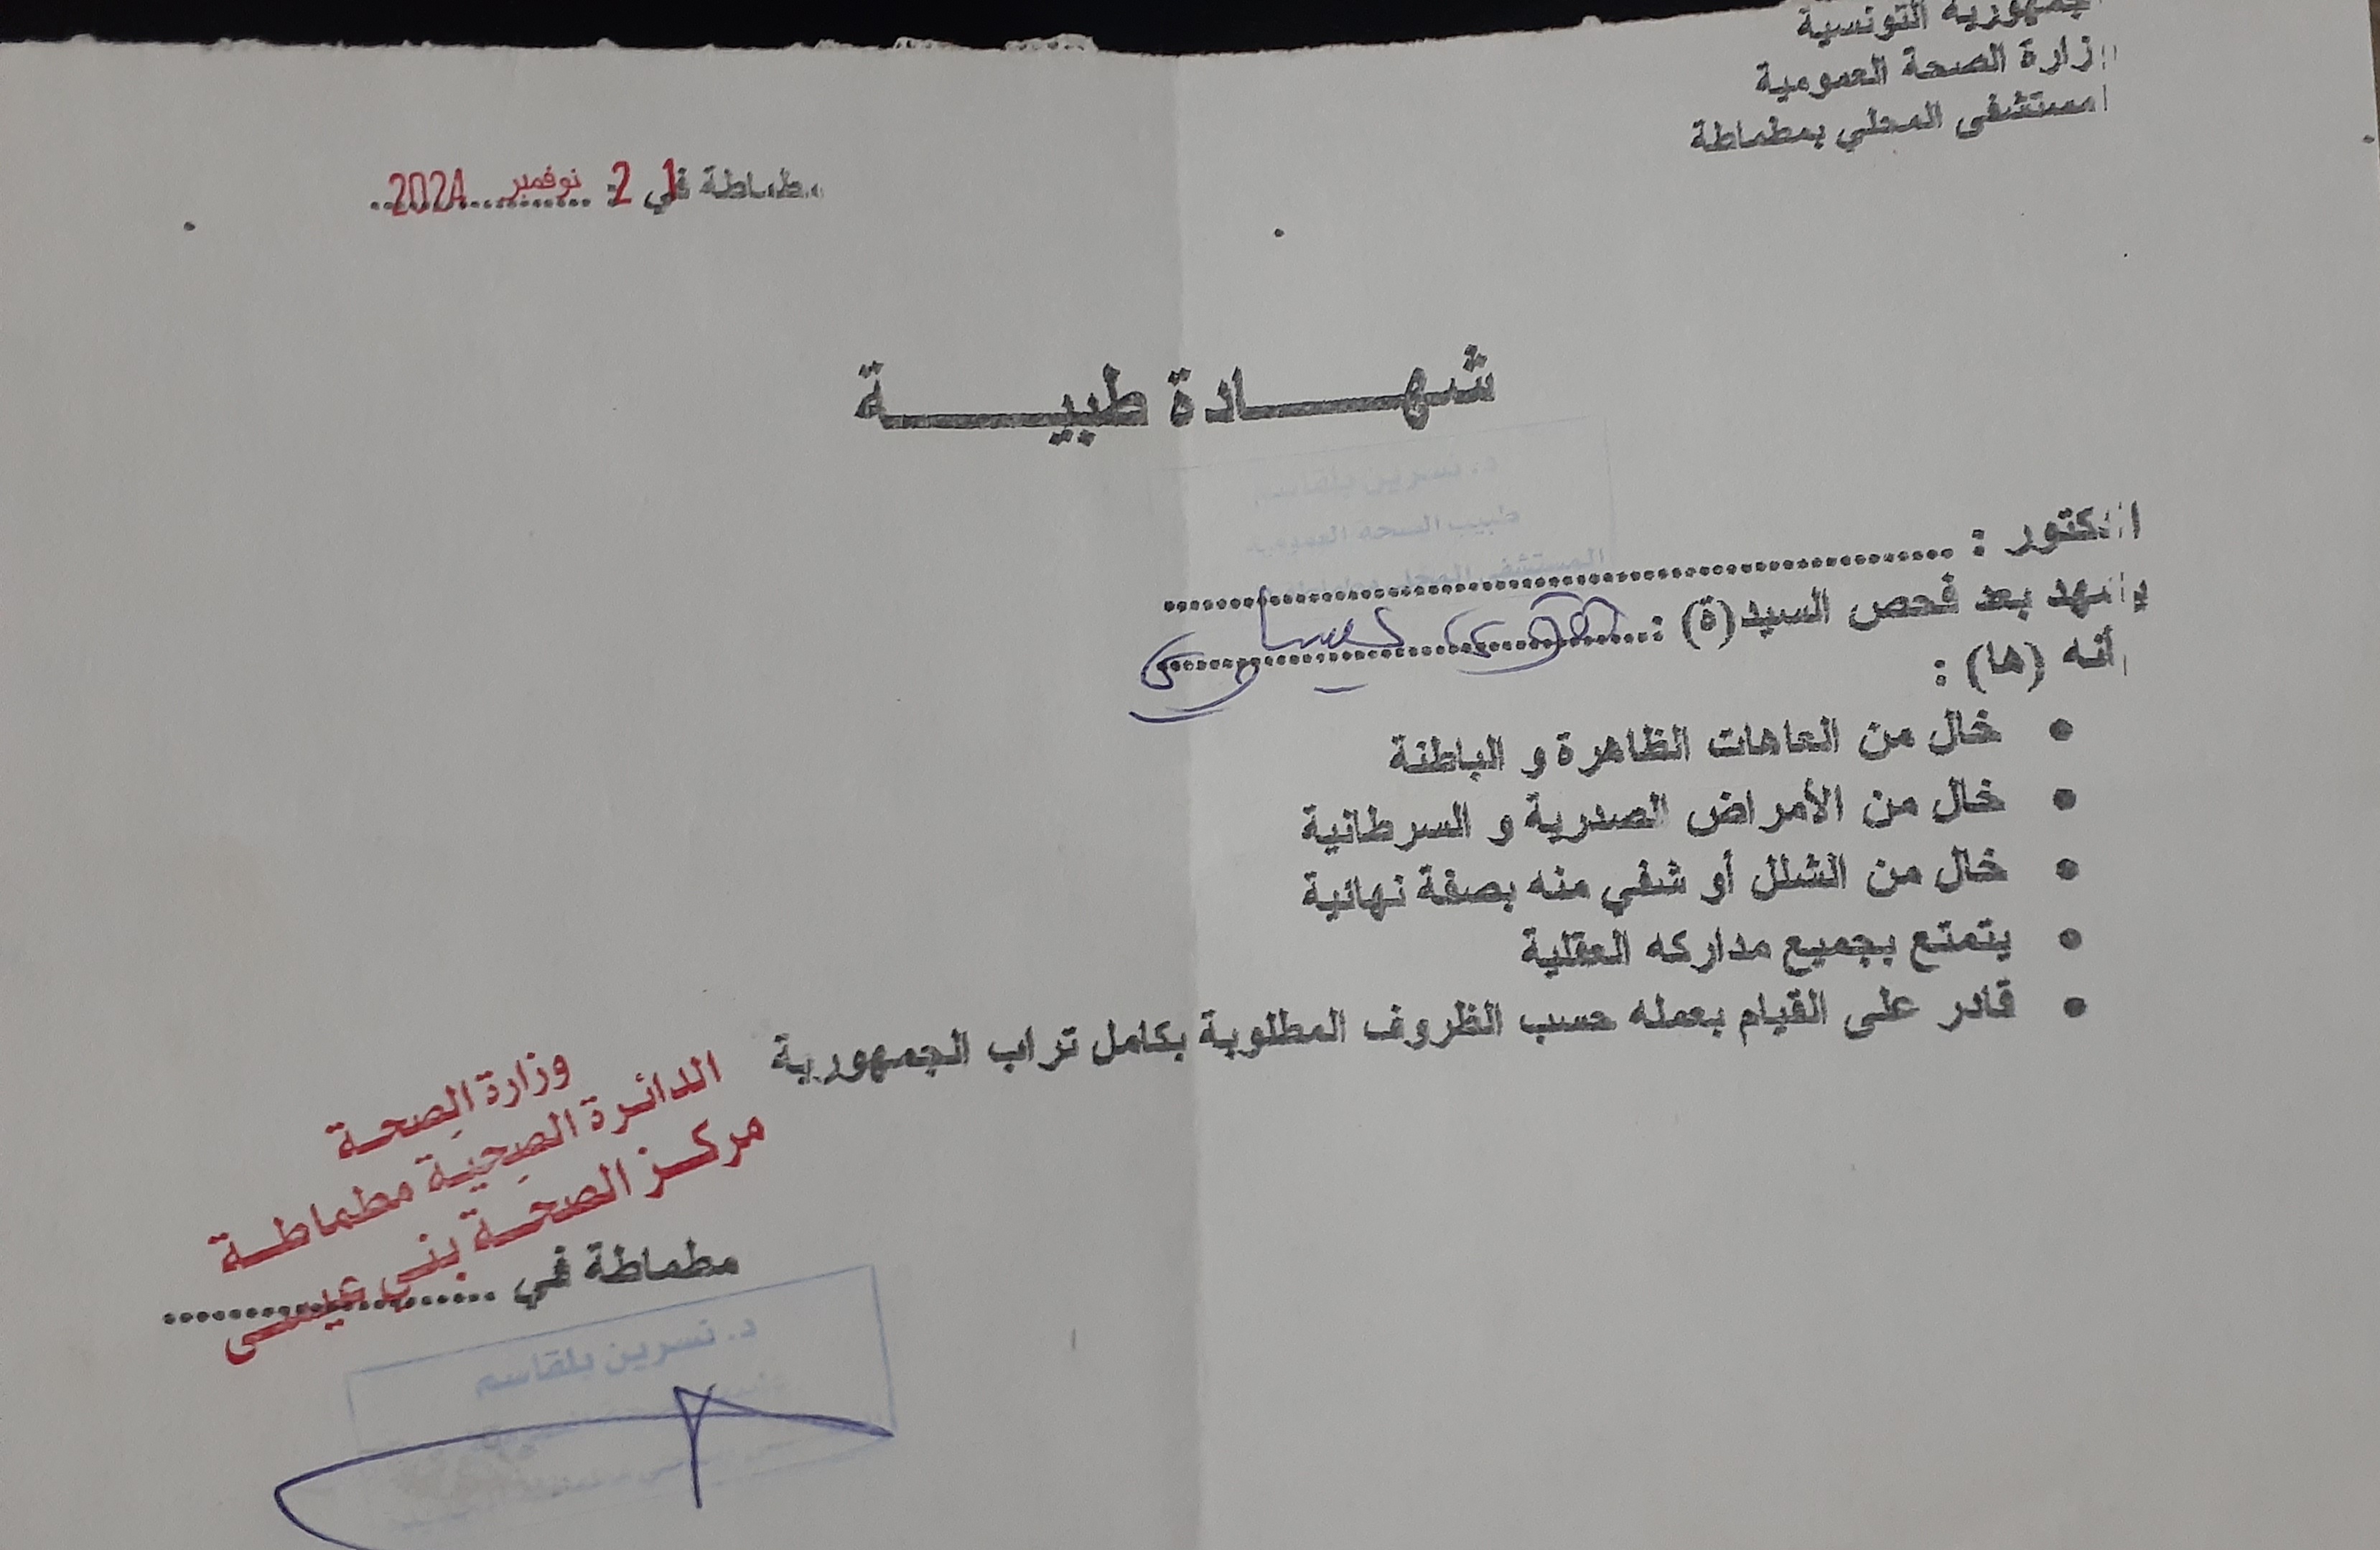 الجمهورية التونسية
وزارة الصحة العمومية
المستشفى المحلي بمطماطة
مطماطة في 21 نوفمبر 2024
شهــــادة طبيــــــة
د. نسرين بلقاسم
طبيب الصحة العمومية
المستشفى المحلي مطماطة
الدكتور : ........................................
يشهد بعد فحص السيد(ة) : ........................
أنه (ها) :
• خال من العاهات الظاهرة و الباطنة
• خال من الأمراض الصدرية و السرطانية
• خال من الشلل أو شفي منه بصفة نهائية
• يتمتع بجميع مداركه العقلية
• قادر على القيام بعمله حسب الظروف المطلوبة بكامل تراب الجمهورية
وزارة الصحـة
الدائـرة الصحيـة مطماطـة
مركـز الصحـة بنـي عيسـى
مطماطة في ........................
د. نسرين بلقاسم